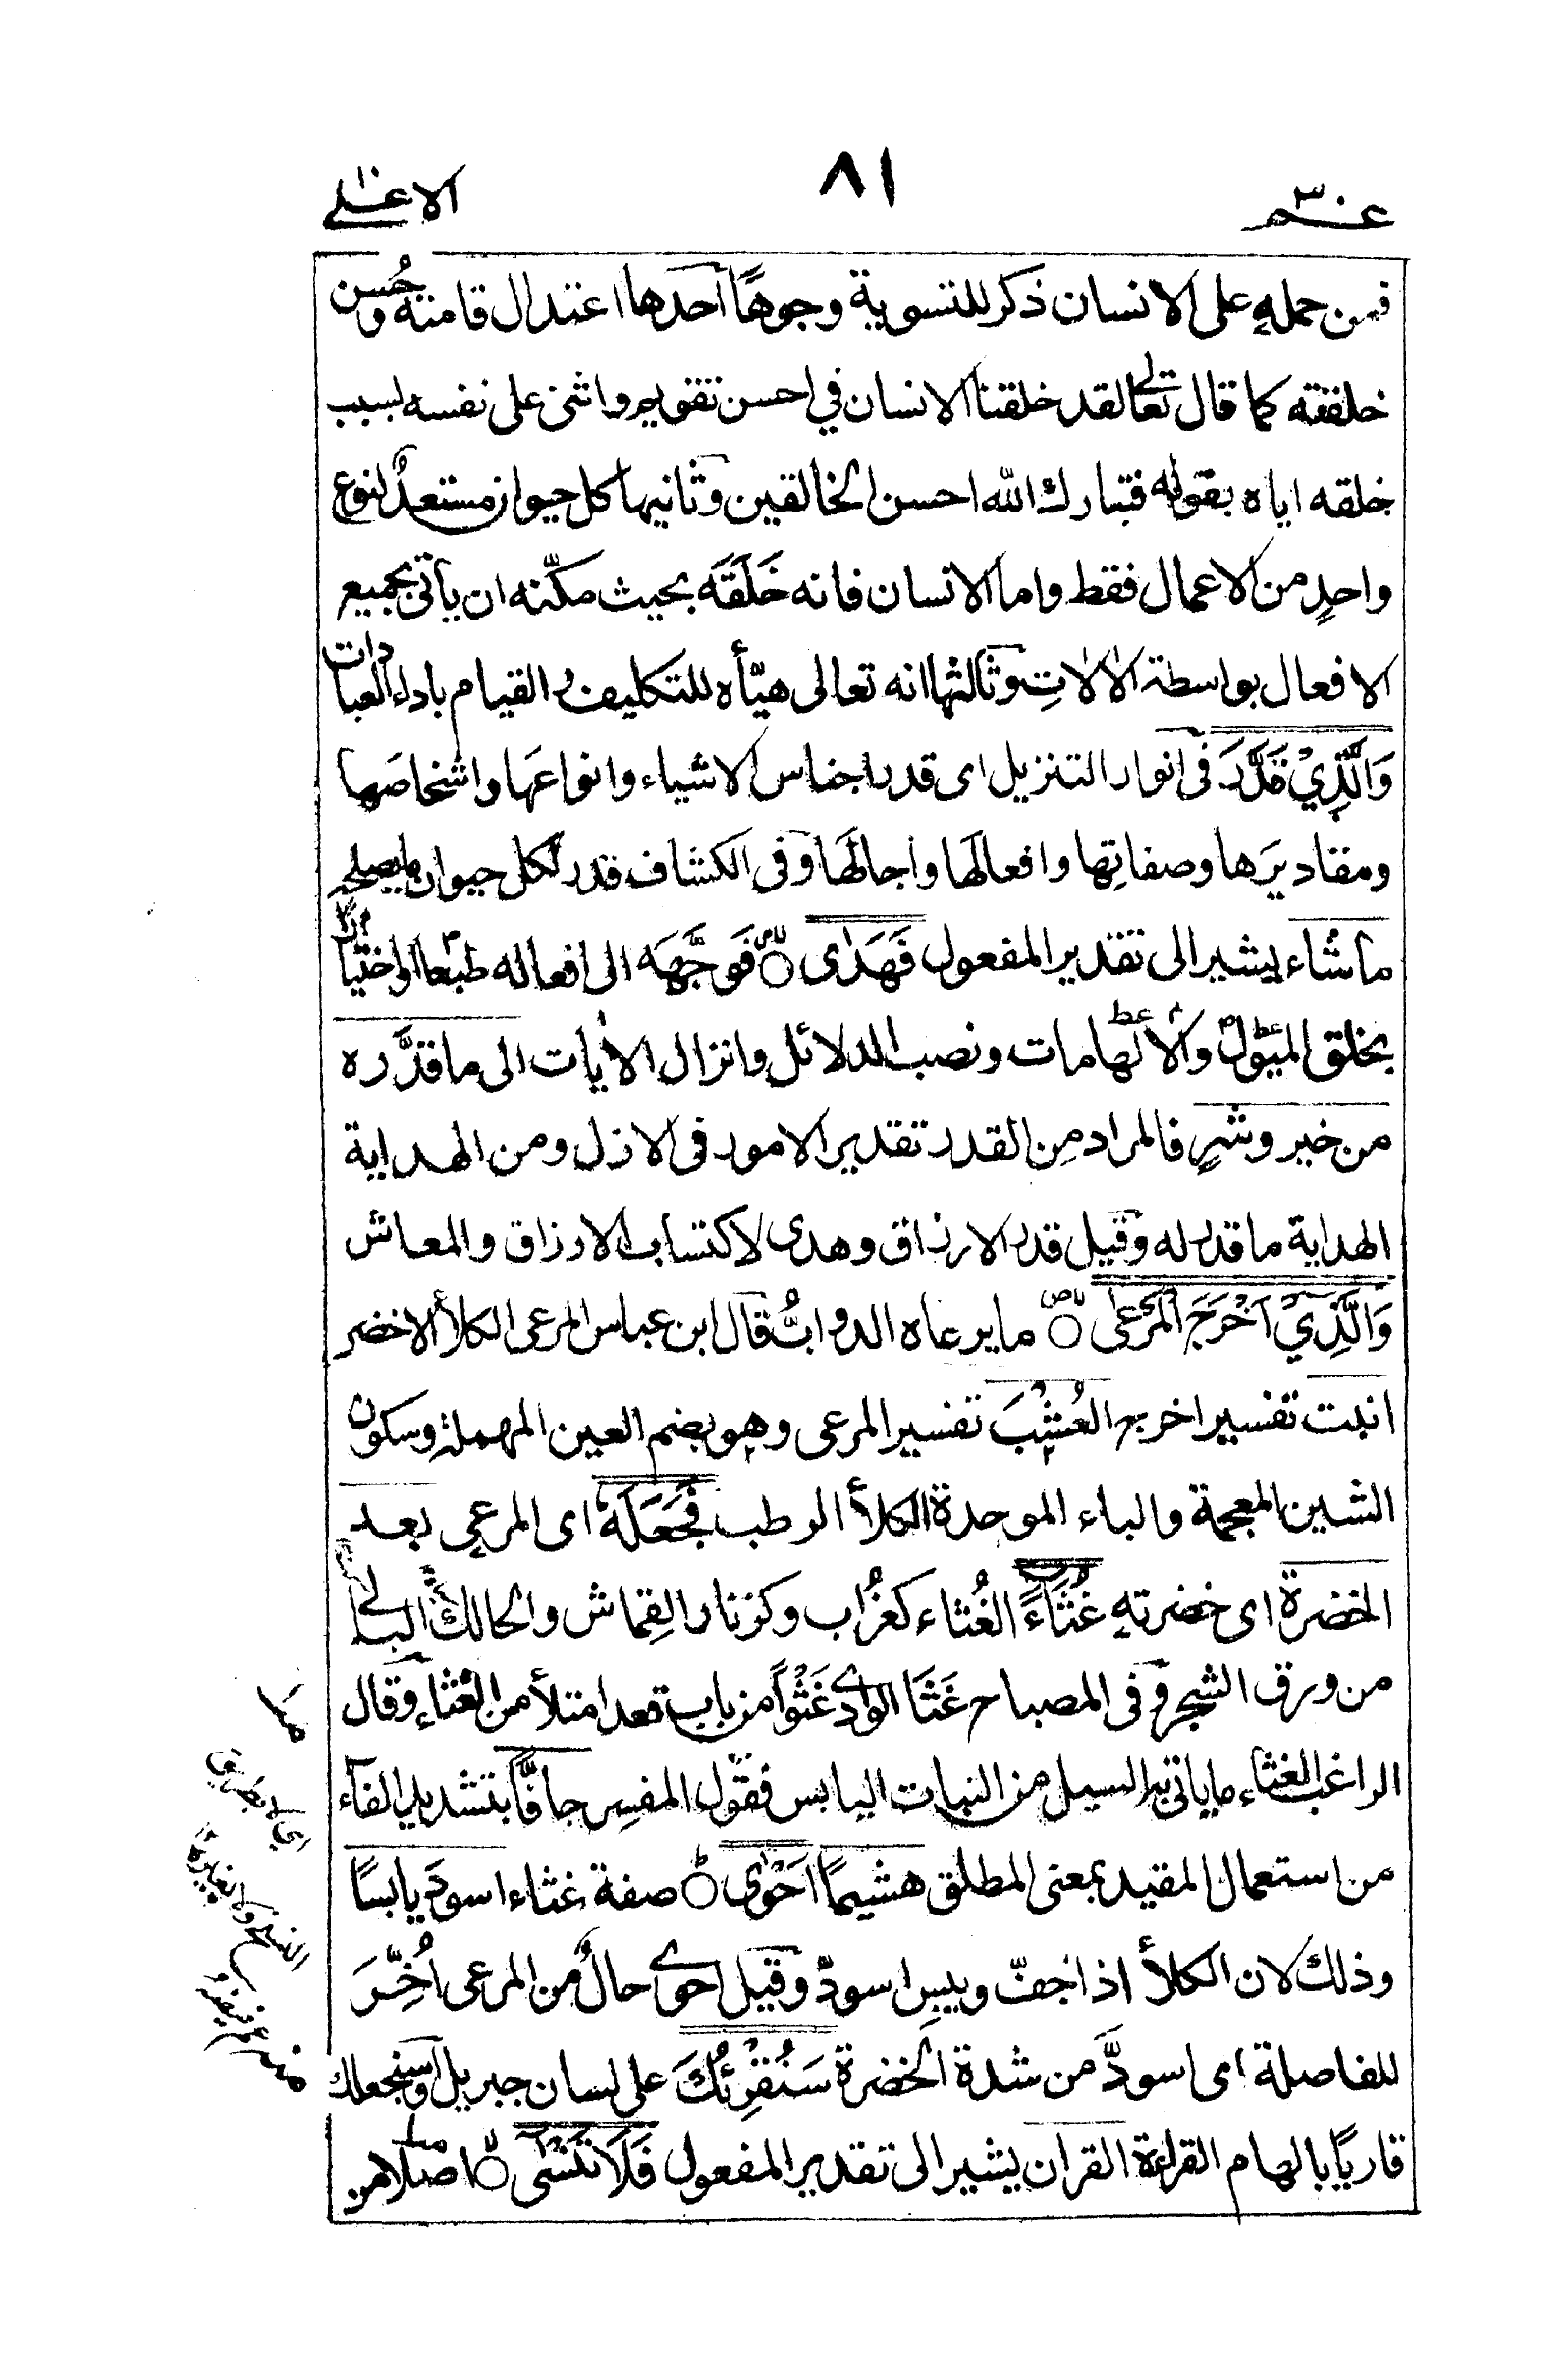 عم ٣٠
٨١
الاعلى
فمن حمله على الانسان ذكر للتسوية وجوهًا احدها اعتدال قامته وحُسن
خلقته كما قال تعالى لقد خلقنا الانسان في احسن تقويم واثنى على نفسه بسبب
خلقه اياه بقوله فتبارك الله احسن الخالقين وثانيها كل حيوان مستعدٌ لنوع
واحدٍ من الاعمال فقط واما الانسان فانه خَلَقَه بحيث مكّنه ان يأتى بجميع
الافعال بواسطة الالاتِ وثالثها انه تعالى هيّأه للتكليف والقيام باداء العبادات
وَالَّذِيْ قَدَّرَ فى انوار التنزيل اى قدر اجناس الاشياء وانواعَها واشخاصَها
ومقاديرَها وصفاتِها وافعالَها واجالَها وفى الكشاف قدر لكل حيوان ما يصلحه
ما شاء يشير الى تقدير المفعول فَهَدٰى فَوجَّهَه الى افعاله طبعا او اختيارا
بخلق الميول والالهامات ونصب الدلائل وانزال الاٰيات الى ما قدَّره
من خير وشرٍ فالمراد مِن القدر تقدير الامور فى الازل ومن الهداية
الهداية ما قدر له وقيل قدر الارزاق وهدى لاكتساب الارزاق والمعاش
وَالَّذِيْ اَخْرَجَ الْمَرْعٰى ما يرعاه الدوابُّ قال ابن عباس المرعى الكلأ الاخضر
انبت تفسير اخرج العُشْبَ تفسير المرعى وهو بضم العين المهملة وسكون
الشين المعجمة والباء الموحدة الكلأ الرطب فَجَعَلَهٗ اى المرعى بعد
الخضرة اى خضرته غُثَاءً الغُثاء كغُراب وكزنار القِماش والهالك البالى
من ورق الشجر وفى المصباح غَثَا الوادى غَثْوًا من باب قعد امتلأ من الغثاء وقال
الراغب الغثاء ما ياتى به السيل من النبات اليابس فقول المفسِر جافًّا بتشديد الفاء
من استعمال المقيد بمعنى المطلق هشيمًا اَحْوٰى صفة غثاء اسودَ يابسًا
وذلك لان الكلأ اذا جفّ ويبِس اسودّ وقيل احوى حالٌ من المرعى اُخِّرَ
للفاصلة اى اسودَّ من شدة الخضرة سَنُقْرِئُكَ على لسان جبريل او سنجعلك
قاريًا بالهام القراءة القران يشير الى تقدير المفعول فَلَا تَنْسٰى اصلا من